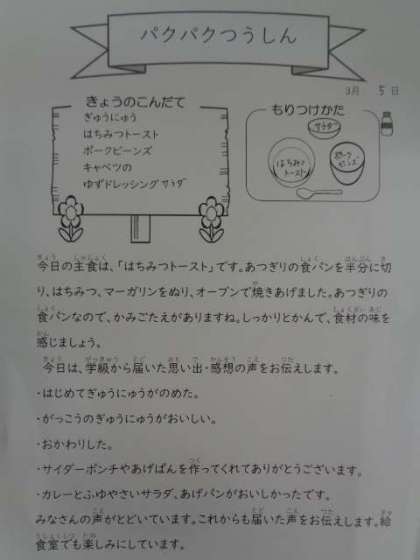 パクパクつうしん
3月 5日
きょうのこんだて
ぎゅうにゅう
はちみつトースト
ポークビーンズ
キャベツの
ゆずドレッシングサラダ
もりつけかた
サラダ
はちみつ
トースト
ポーク
ビーンズ
今日の主食は、「はちみつトースト」です。あつぎりの食パンを半分に切
り、はちみつ、マーガリンをぬり、オーブンで焼きあげました。あつぎりの
食パンなので、かみごたえがありますね。しっかりとかんで、食材の味を
感じましょう。
今日は、学級から届いた思い出・感想の声をお伝えします。
・はじめてぎゅうにゅうがのめた。
・がっこうのぎゅうにゅうがおいしい。
・おかわりした。
・サイダーポンチやあげぱんを作ってくれてありがとうございます。
・カレーとふゆやさいサラダ、あげパンがおいしかったです。
みなさんの声がとどいています。これからも届いた声をお伝えします。給
食室でも楽しみにしています。